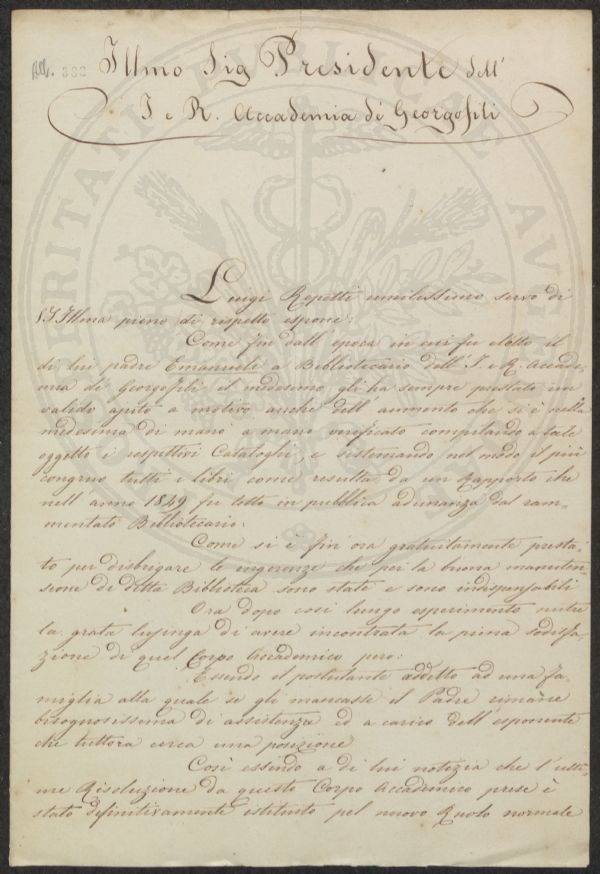 382
Illmo Sig Presidente dell'
I e R. Accademia de Georgofili
Luigi Repetti umilissimo servo di
V S Illma pieno di rispetto espone:
Come fin dall' epoca in cui fu eletto il
di lui padre Emanuele a Bibliotecario dell' I e R. Accade-
mia di Georgofili il medesimo gli ha sempre prestato un
valido ajuto a motivo anche dell' aumento che si è nella
medesima di mano a mano verificato compilando a tale
oggetto i respettivi Cataloghi, e sistemando nel modo il più
congruo tutti i libri come resulta da un Rapporto che
nell' anno 1849 fu letto in pubblica adunanza dal ram-
mentato Bibliotecario.
Come si è fin ora gratuitamente presta-
to per disbrigare le ingerenze che per la buona manuten-
sione di detta Biblioteca sono state e sono indispensabili
Ora dopo così lungo esperimento nutre
la grata lusinga di avere incontrata la piena sodisfa-
zione di quel Corpo Accademico pero:
Essendo il postulante addetto ad una fa-
miglia alla quale se gli mancasse il Padre rimarre
bisognosissima di assistenza ed a carico dell' esponente
che tuttora cerca una posizione
Così essendo a di lui notizia che l'ulti-
me Risoluzione da questo Corpo Accademico prese è
stato definitivamente istituito pel nuovo Ruolo normale